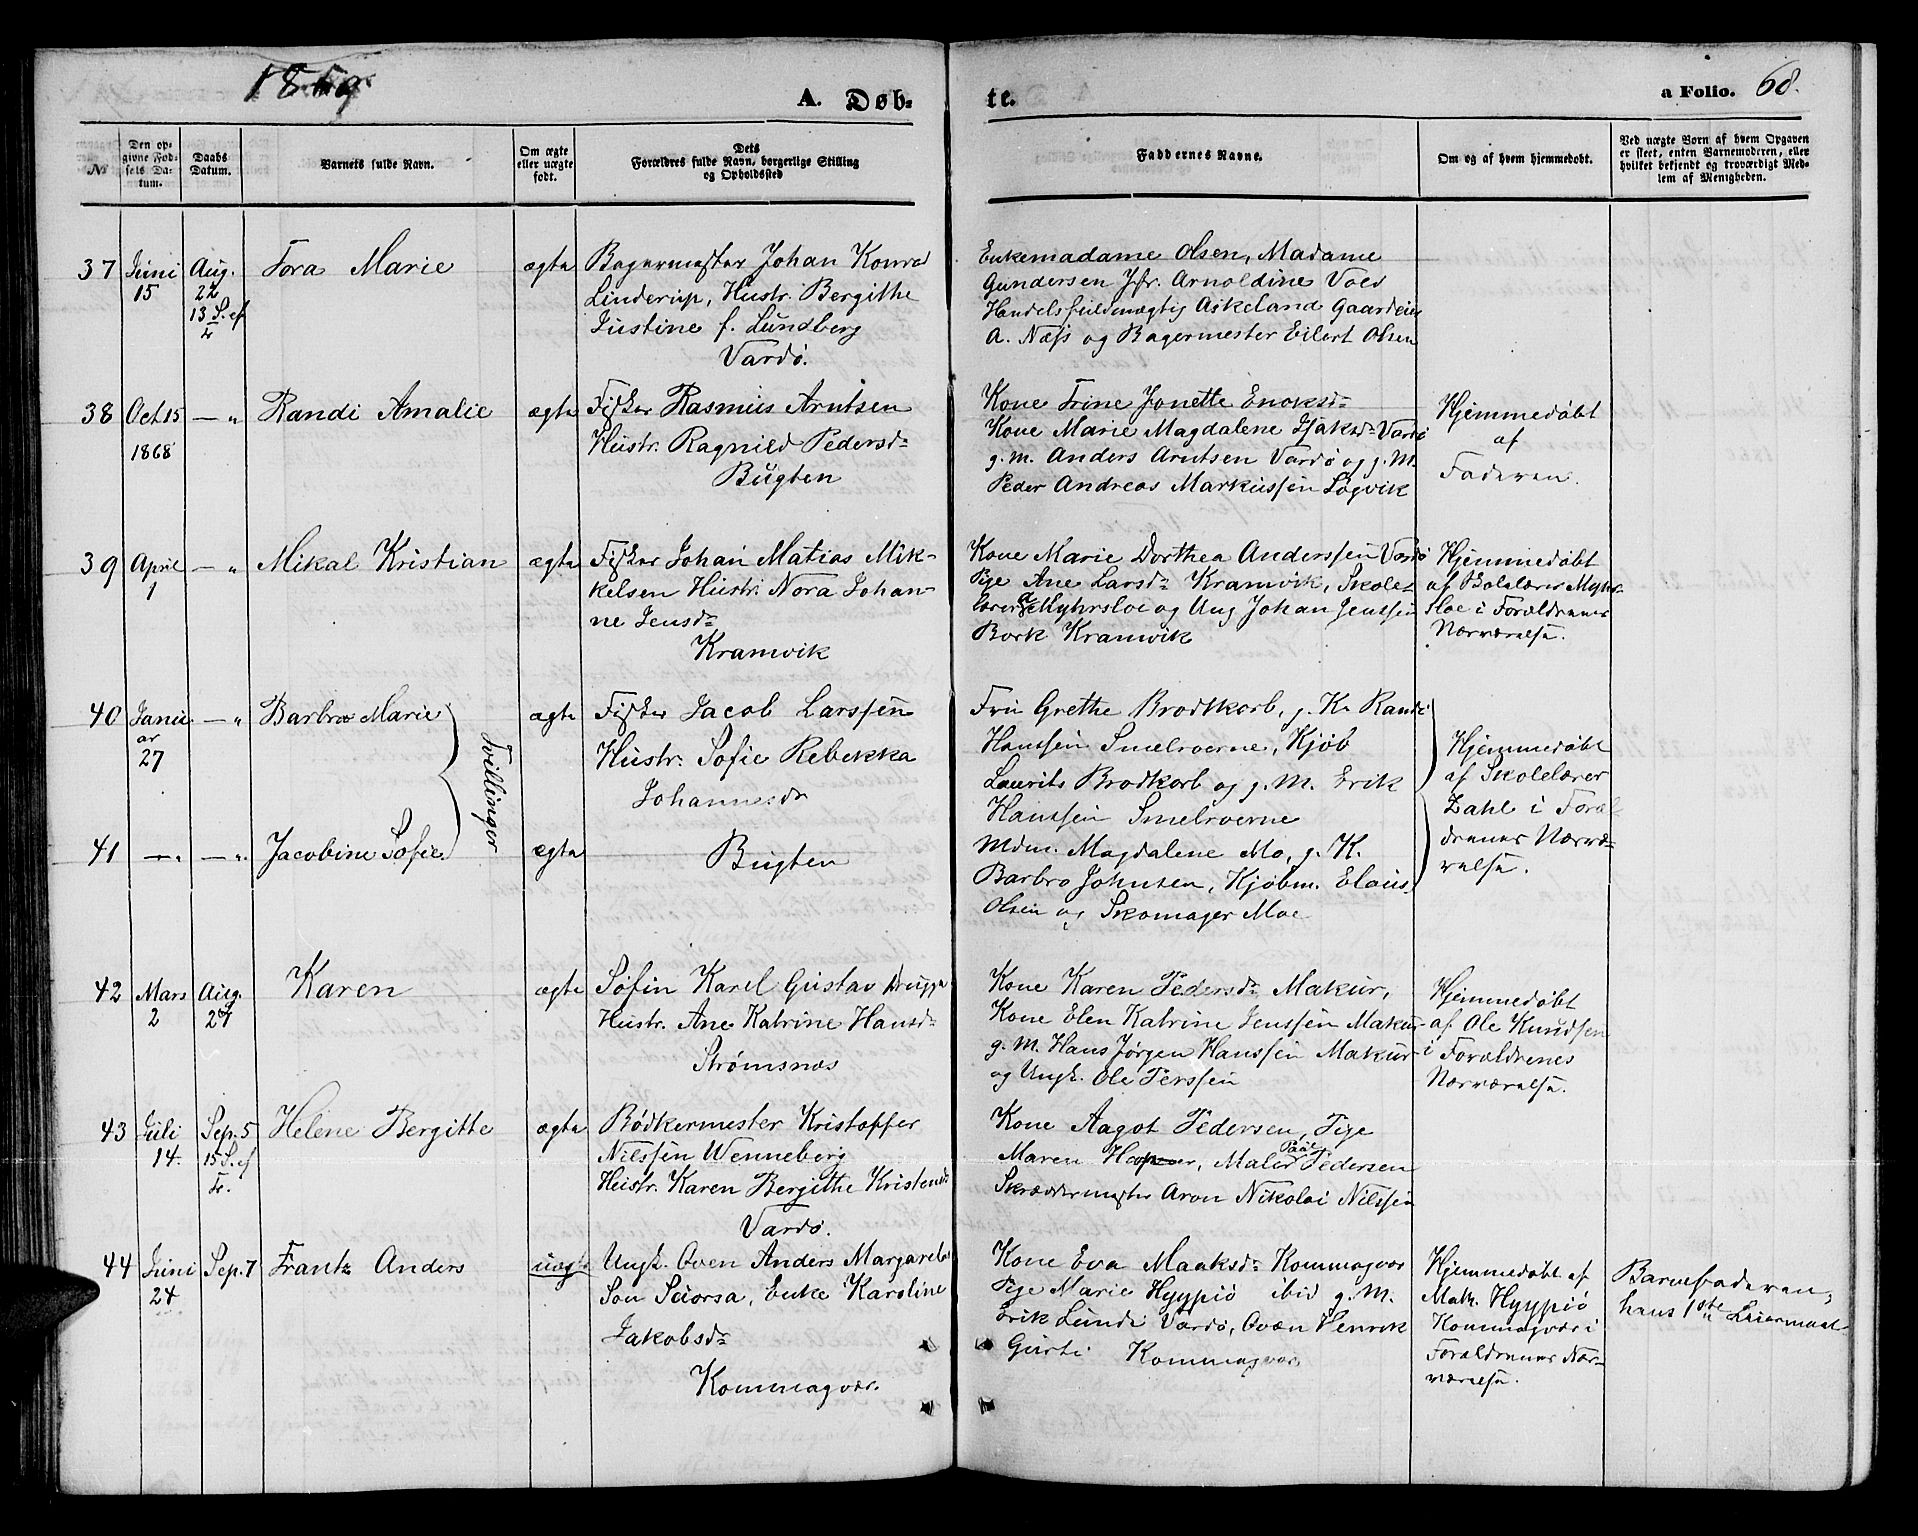 1869.
A. Døb-
te.
a Folio. 68.
№
Den op-
givne Fød-
sels Da-
tum.
Daabs
Datum.
Barnets fulde Navn.
Om ægte
eller uægte
født.
Dets
Forældres fulde Navn, borgerlige Stilling
og Opholdssted
Faddernes Navne.
Om og af hvem hjemmedøbt.
Ved uægte Børn af hvem Opgaven
er skeet, enten Barnemoderen, eller
hvilket bekjendt og troværdigt Med-
lem af Menigheden.
37
Juni
15
Aug.
22
13 S. ef
Tr
Tora Marie
ægte
Bagermester Johan Konrad
Linderup, Hustr. Bergithe
Justine f. Lundberg
Vardø.
Enkemadame Olsen, Madame
Gundersen Jfr. Arnoldine Vold
Handelsfuldmægtig Askeland Gaardeier
A. Næss og Bagermester Eilert Olsen
38
Oct 15
1868
— „
Randi Amalie
ægte
Fisker Rasmus Arntsen
Hustr. Ragnild Pedersd.
Bugten
Kone Trine Jonette Enoksd.
Kone Marie Magdalene Isaksd. Vardø
g. M. Anders Arntsen Vardø og g. M.
Peder Andreas Markussen Løgvik
Hjemmedøbt
af
Faderen.
39
April
1
— „
Mikal Kristian
ægte
Fisker Johan Matias Mik-
kelsen Hustr. Nora Johan-
ne Jensd.
Kramvik
Kone Marie Dorthea Anderssen Vardø
Pige Ane Larsd. Kramvik, Skole-
lærer Myhrsloe og Ung Johan Jenssen
Bork Kramvik
Hjemmedøbt
af Skolelærer Myhr-
sloe i Forældrenes
Nærværelse.
40
Janu-
ar
27
— „
Barbro Marie
Tvillinger
ægte
Fisker Jacob Larssen
Hustr. Sofie Rebekka
Johannesdr
Fru Grethe Brodtkorb, g. K. Randi
Hanssen Smelrorerne, Kjøb
Laurits Brodkorb og g. M. Erik
Hanssen Smelrorerne
Hjemmedøbt
af Skolelærer
Zahl i Foræl
drenes Nærvæ-
relse.
41
— „
— „
Jacobine Sofie
ægte
Bugten
Mdm. Magdalene Mo, g. K.
Barbro Johnsen, Kjøbm. Claus
Olsen og Skomager Moe
42
Mars
2
Aug.
27
Karen
ægte
Søfin Karel Gustav Drugge
Hustr. Ane Katrine Hansd.
Strømsnæs
Kone Karen Pedersd. Makur,
Kone Elen Katrine Jenssen Makur
g. M. Hans Jørgen Hanssen Makur
og Ungk. Ole Persen
Hjemmedøbt
af Ole Knudsen
i Forældrenes
Nærværelse.
43
Juli
14.
Sep. 5
15 S. ef
Tr.
Helene Bergitte
ægte
Bødkermester Kristoffer
Nilssen Wenneberg
Hustr. Karen Bergithe Kristensd
Vardø.
Kone Aagot Pedersen, Pige
Maren, Maler Paal Pedersen
Skræddermester Aron Nikolai Nilssen
44
Juni
24
Sep. 7
Frantz Anders
uægte
Ungk. Qven Anders Margareta
Son Suorsa, Enke Karoline
Jakobsd.
Kommagvær.
Kone Eva Maaksd. Kommagvær
Pige Marie Hyypiö ibid g. M.
Erik Lundi Vardø, Qvæn Henrik
Gurti Kommagvær
Hjemmedøbt af
Mak. Hyypiö
Kommagvær i
Forældrenes Nær-
værelse.
Barnefaderen,
hans 1ste Leiermaal